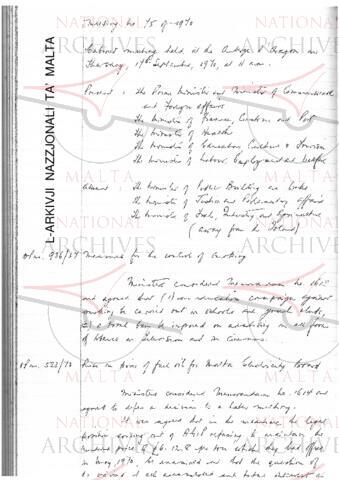 L-ARKIVJI NAZZJONALI TA' MALTA
NATIONAL
ARCHIVES
MALTA
Meeting no. 75 of 1970
Cabinet meeting held at the Auberge d'Aragon on
Thursday, 17th September, 1970, at 11 a.m.
Present: the Prime Minister and Minister of Commonwealth
and Foreign Affairs
the Minister of Finance, Customs and Port
the Minister of Health
the Minister of Education, Culture & Tourism
the Minister of Labour, Employment and Welfare
Absent: the Minister of Public Building and Works
the Minister of Justice and Parliamentary Affairs
the Minister of Trade, Industry and Agriculture
(away from the Island)
Measures for the control of smoking
Ministers considered Memorandum no.
and agreed that (1) an education campaign against
smoking be carried out in schools and youth clubs,
(2) a total ban be imposed on advertising in all forms
of tobacco on Television and in Cinemas.
Rise in price of fuel oil for Malta Electricity Board
Ministers considered Memorandum no. 1614 and
agreed to defer a decision to a later meeting.
It was agreed that in the meantime the legal
position arising out of refusing to maintain the
price of per ton which they had offered
in May 1970, be examined and that the question of
be and